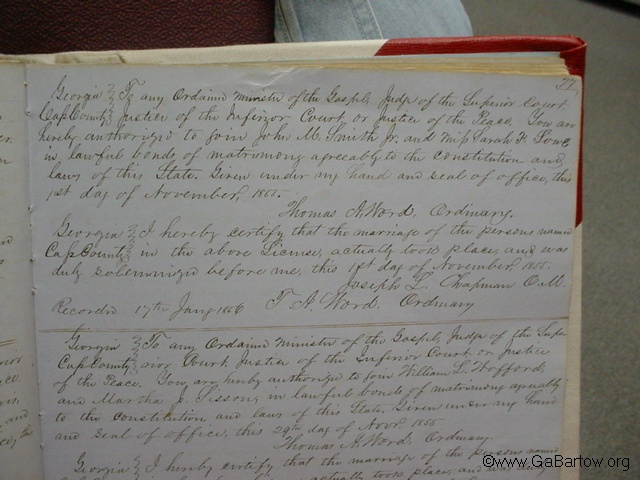 77
Georgia } To any Ordained Minister of the Gospel, Judge of the Superior Court
Cass County } Justice of the Inferior Court, or Justice of the Peace. You are
hereby authorized to join John M. Smith Jr. and Miss Sarah F. Lowe
in lawful bonds of matrimony agreeably to the Constitution and
laws of this State. Given under my hand and seal of office, this
1st day of November, 1855.
Thomas A. Word. Ordinary.
Georgia } I hereby certify that the marriage of the persons named
Cass County } in the above License, actually took place, and was
duly solemnized before me, this 1st day of November, 1855.
Joseph L. Chapman
Recorded 17th Jany 1856 T. A. Word. Ordinary
Georgia } To any Ordained Minister of the Gospel, Judge of the Supe
Cass County } rior Court, Justice of the Inferior Court or Justice
of the Peace. You are hereby authorized to join William L. Wofford,
and Martha J. Sisson, in lawful bonds of matrimony agreeably
to the Constitution and laws of this State. Given under my hand
and seal of office, this 29th day of Novr. 1855
Thomas A. Word. Ordinary
Georgia } I hereby certify that the marriage of the persons named
actually took place, and was duly
©www.GaBartow.org